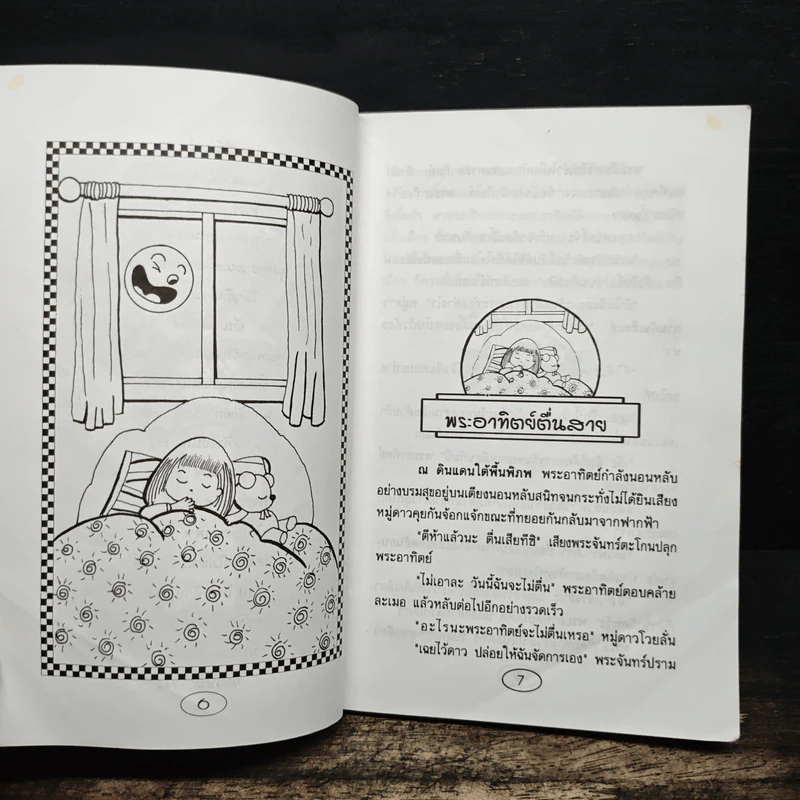 6
พระอาทิตย์ตื่นสาย
ณ ดินแดนใต้พื้นพิภพ พระอาทิตย์กำลังนอนหลับ
อย่างบรมสุขอยู่บนเตียงนอนหลับสนิทจนกระทั่งไม่ได้ยินเสียง
หมู่ดาวคุยกันจ้อกแจ้กขณะที่ทยอยกันกลับมาจากฟากฟ้า
"ตีห้าแล้วนะ ตื่นเสียทีซิ" เสียงพระจันทร์ตะโกนปลุก
พระอาทิตย์
"ไม่เอาละ วันนี้ฉันจะไม่ตื่น" พระอาทิตย์ตอบคล้าย
ละเมอ แล้วหลับต่อไปอีกอย่างรวดเร็ว
"อะไรนะพระอาทิตย์จะไม่ตื่นเหรอ" หมู่ดาวโวยลั่น
"เฉยไว้ดาว ปล่อยให้ฉันจัดการเอง" พระจันทร์ปราม
7